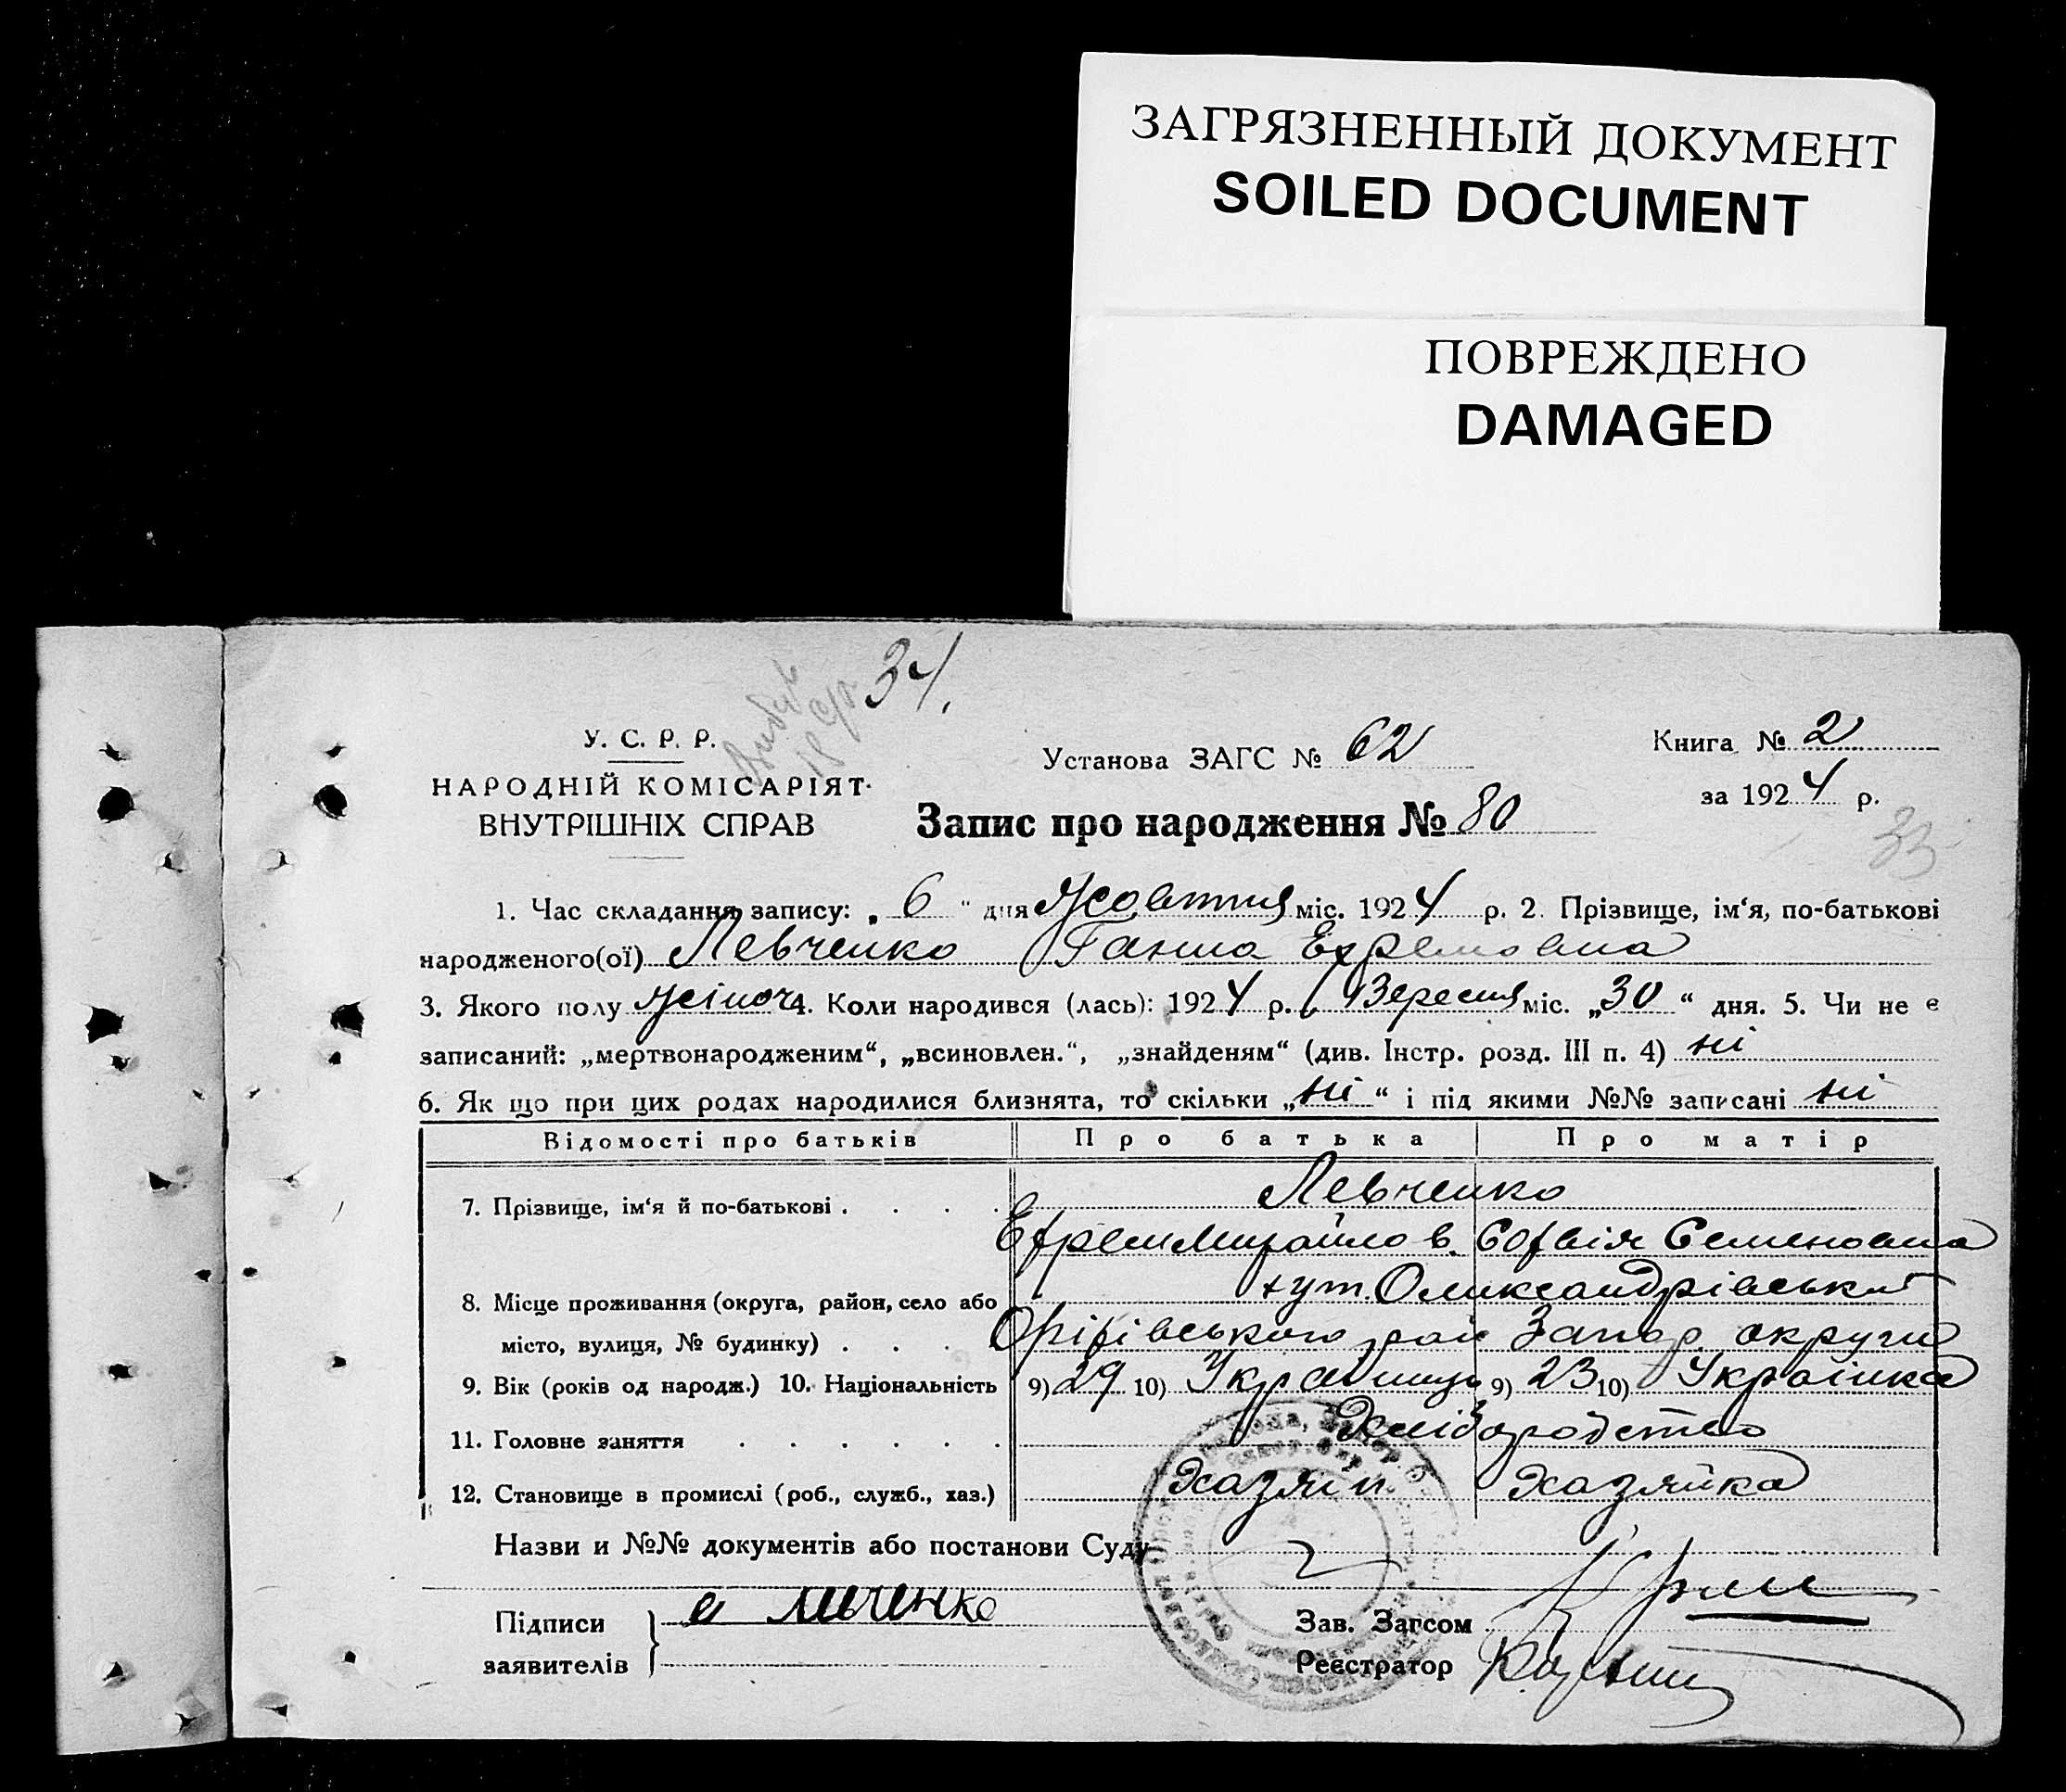 ЗАГРЯЗНЕННЫЙ ДОКУМЕНТ
SOILED DOCUMENT
ПОВРЕЖДЕНО
DAMAGED
34.
У. С. Р. Р.
НАРОДНІЙ КОМІСАРІЯТ
ВНУТРІШНІХ СПРАВ
Установа ЗАГС № 62
Книга № 2
за 1924 р.
Запис про народження № 80
33
1. Час складання запису: „6“ дня Жовтня міс. 1924 р. 2. Прізвище, ім‘я, по-батькові
народженого(ої) Левченко Ганна Ефремовна
3. Якого полу жіноч 4. Коли народився (лась): 1924 р. Вересня міс. „30“ дня. 5. Чи не є
записаний: „мертвонародженим“, „всиновлен.“, „знайденям“ (див. Інстр. розд. III п. 4) ні
6. Як що при цих родах народилися близнята, то скільки „ні“ і під якими №№ записані ні
Відомості про батьків Про батька Про матір
7. Прізвище, ім‘я й по-батькові . . . . Левченко
Ефрем Михайлов. Софвія Семеновна
8. Місце проживання (округа, район, село або хут. Олександрівський
місто, вулиця, № будинку) . . . Оріхівського рай Запор. округи
9. Вік (років од народж.) 10. Національність 9) 29 10) Українець 9) 23 10) Українка
11. Головне заняття . . . . . . Хліборобство
12. Становище в промислі (роб., служб., хаз.) Хазяїн Хазяйка
Назви и №№ документів або постанови Суду
Підписи
заявителів
Зав. Загсом
Реєстратор